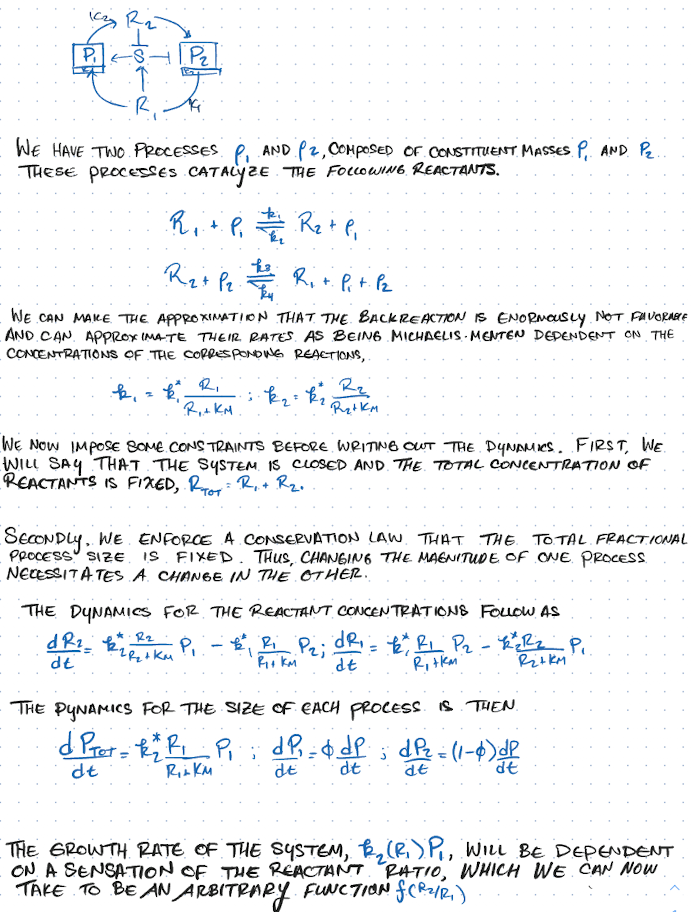 k₂ R₂
P₁ ← S ⊣ P₂
R₁ k₁
WE HAVE TWO PROCESSES ρ₁ AND ρ₂, COMPOSED OF CONSTITUENT MASSES P₁ AND P₂.
THESE PROCESSES CATALYZE THE FOLLOWING REACTANTS.
R₁ + P₁ ⇌ R₂ + P₁ k₁ k₂
R₂ + P₂ ⇌ R₁ + P₁ + P₂ k₃ k₄
WE CAN MAKE THE APPROXIMATION THAT THE BACKREACTION IS ENORMOUSLY NOT FAVORABLE
AND CAN APPROXIMATE THEIR RATES AS BEING MICHAELIS-MENTEN DEPENDENT ON THE
CONCENTRATIONS OF THE CORRESPONDING REACTIONS,
k₁ = k₁* R₁/(R₁+KM) ; k₂ = k₂* R₂/(R₂+KM)
WE NOW IMPOSE SOME CONSTRAINTS BEFORE WRITING OUT THE DYNAMICS. FIRST, WE
WILL SAY THAT THE SYSTEM IS CLOSED AND THE TOTAL CONCENTRATION OF
REACTANTS IS FIXED, R_TOT = R₁ + R₂.
SECONDLY, WE ENFORCE A CONSERVATION LAW THAT THE TOTAL FRACTIONAL
PROCESS SIZE IS FIXED. THUS, CHANGING THE MAGNITUDE OF ONE PROCESS
NECESSITATES A CHANGE IN THE OTHER.
THE DYNAMICS FOR THE REACTANT CONCENTRATIONS FOLLOW AS
dR₂/dt = k₂* R₂/(R₂+KM) P₁ - k₁* R₁/(R₁+KM) P₂ ; dR₁/dt = k₁* R₁/(R₁+KM) P₂ - k₂* R₂/(R₂+KM) P₁
THE DYNAMICS FOR THE SIZE OF EACH PROCESS IS THEN
dP_TOT/dt = k₂* R₁/(R₁+KM) P₁ ; dP₁/dt = ϕ dP/dt ; dP₂/dt = (1-ϕ) dP/dt
THE GROWTH RATE OF THE SYSTEM, k₂(R₁)P₁, WILL BE DEPENDENT
ON A SENSATION OF THE REACTANT RATIO, WHICH WE CAN NOW
TAKE TO BE AN ARBITRARY FUNCTION f(R₂/R₁)